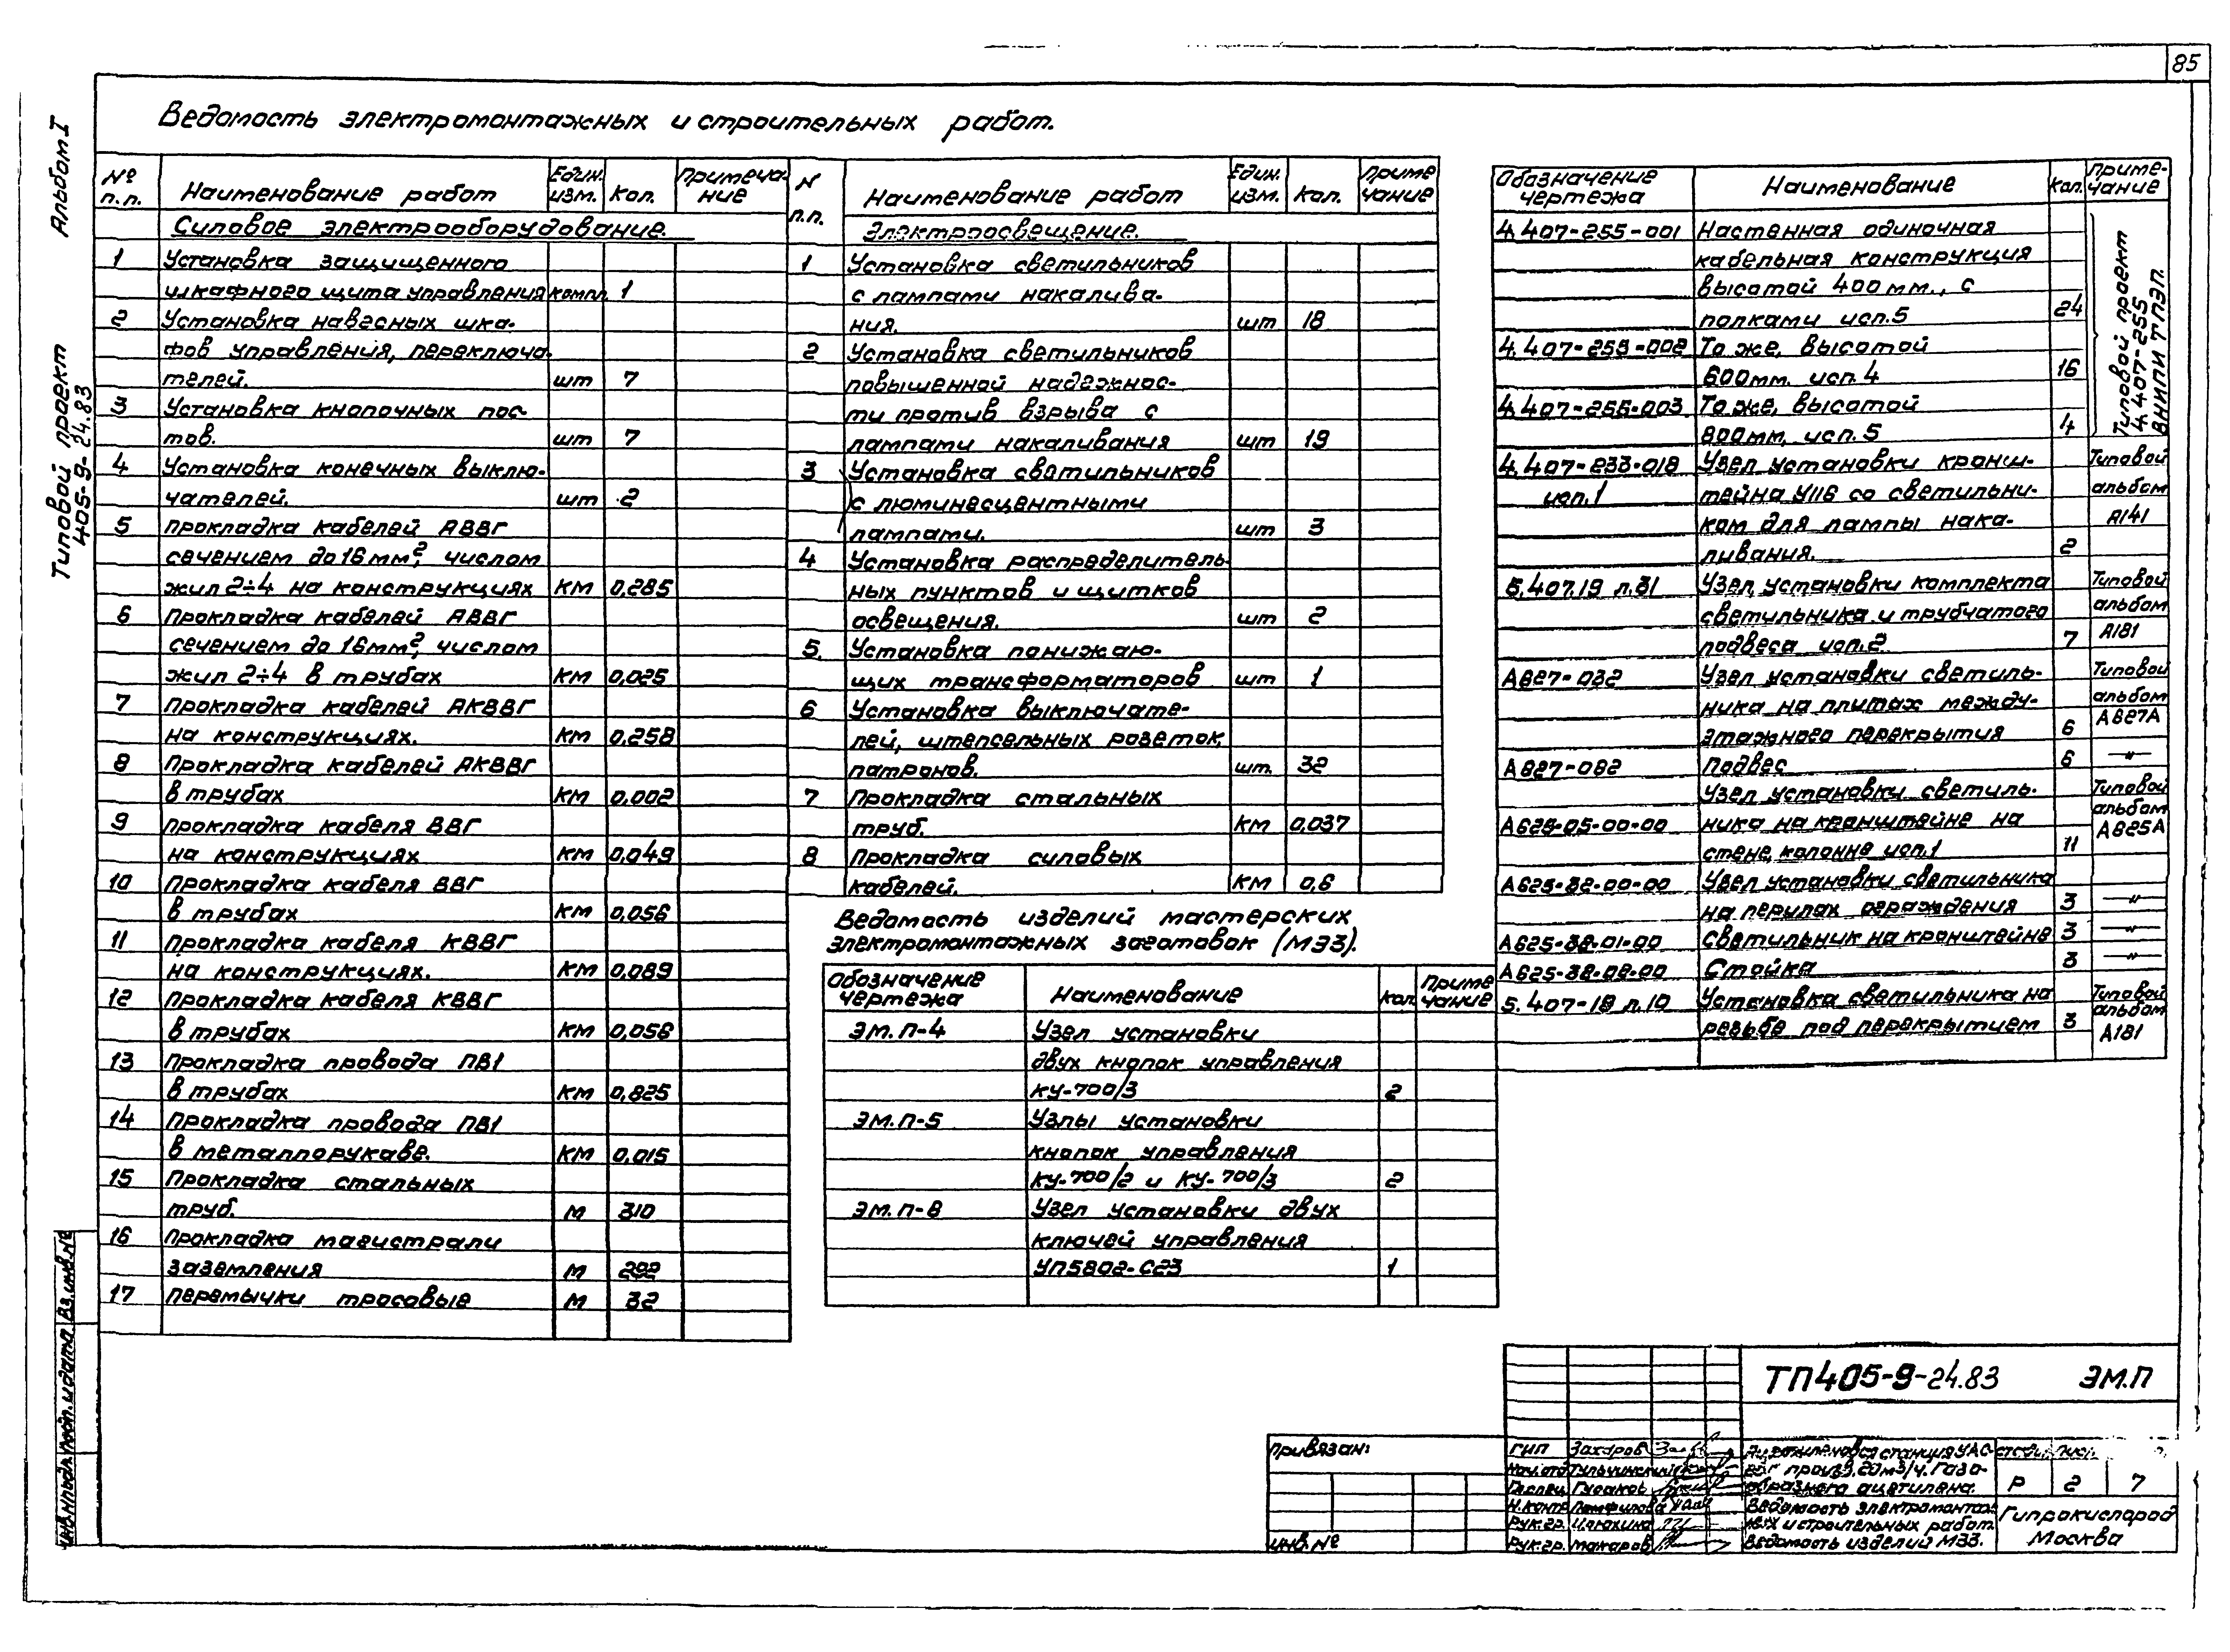 85
Альбом I
Типовой проект
405-9-24.83
Ведомость электромонтажных и строительных работ.
№ п.п. Наименование работ Един. изм. Кол. Примечание
Силовое электрооборудование.
1 Установка защищенного
шкафного щита управления компл. 1
2 Установка навесных шка-
фов управления, переключа-
телей. шт 7
3 Установка кнопочных пос-
тов. шт 7
4 Установка конечных выклю-
чателей. шт 2
5 Прокладка кабелей АВВГ
сечением до 16 мм², числом
жил 2÷4 на конструкциях КМ 0,285
6 Прокладка кабелей АВВГ
сечением до 16мм², числом
жил 2÷4 в трубах КМ 0,025
7 Прокладка кабелей АКВВГ
на конструкциях. КМ 0,258
8 Прокладка кабелей АКВВГ
в трубах КМ 0,002
9 Прокладка кабеля ВВГ
на конструкциях КМ 0,049
10 Прокладка кабеля ВВГ
в трубах КМ 0,056
11 Прокладка кабеля КВВГ
на конструкциях. КМ 0,089
12 Прокладка кабеля КВВГ
в трубах КМ 0,056
13 Прокладка провода ПВ1
в трубах КМ 0,825
14 Прокладка провода ПВ1
в металлорукаве. КМ 0,015
15 Прокладка стальных
труб. М 310
16 Прокладка магистрали
заземления М 292
17 Перемычки тросовые М 32
N п.п. Наименование работ Един. изм. Кол. Приме чание
Электроосвещение.
1 Установка светильников
с лампами накалива-
ния. шт 18
2 Установка светильников
повышенной надежнос-
ти против взрыва с
лампами накаливания шт 19
3 Установка светильников
с люминесцентными
лампами. шт 3
4 Установка распределитель-
ных пунктов и щитков
освещения. шт 2
5. Установка понижаю-
щих трансформаторов шт 1
6 Установка выключате-
лей, штепсельных розеток,
патронов. шт. 32
7 Прокладка стальных
труб. КМ 0,037
8 Прокладка силовых
кабелей. КМ 0,6
Ведомость изделий мастерских
электромонтажных заготовок (МЭЗ).
Обозначение чертежа Наименование Кол. Приме чание
ЭМ.П-4 Узел установки
двух кнопок управления
КУ-700/3 2
ЭМ.П-5 Узлы установки
кнопок управления
КУ-700/2 и КУ-700/3 2
ЭМ.П-8 Узел установки двух
ключей управления
УП5802-С23 1
Обозначение чертежа Наименование Кол. Приме-чание
4.407-255-001 Настенная одиночная
кабельная конструкция
высотой 400 мм., с
полками исп.5 24
4.407-255-002 То же, высотой
600мм. исп.4 16
4.407-255-003 То же, высотой
800мм, исп.5 4
Типовой проект
4.407-255
ВНИПИ ТПЭП.
4.407-233-018 Узел установки кронш- Типовой
исп.1 тейна У116 со светильни- альбом
ком для лампы нака- А141
ливания. 2
5.407.19 л.31 Узел установки комплекта Типовой
светильника и трубчатого альбом
подвеса исп.2 7 А181
А827-032 Узел установки светиль- Типовой
ника на плитах между- альбом
этажного перекрытия 6 А827А
А827-082 Подвес 6 —"—
Узел установки светиль- Типовой
А625-05-00-00 ника на кронштейне на альбом
стене, колонне исп.1 11 А625А
А625-32-00-00 Узел установки светильника
на перилах ограждения 3 —"—
А625-38-01-00 Светильник на кронштейне 3 —"—
А625-38-02-00 Стойка 3 —"—
5.407-18 л.10 Установка светильника на Типовой
резьбе под перекрытием 3 альбом
А181
Инв.№подл. Подп. и дата Вз.инв.№
Привязан:
Инв.№
ТП405-9-24.83 ЭМ.П
ГИП Захаров
Нач.отд Тульчинский
Гл.спец Гусаков
Н.контр Памфилова
Рук.гр.
Рук.гр. Макаров
Ацетиленовая станция
произв. 20м3/ч. Газо-
образного ацетилена.
Р 2 7
Ведомость электромонтаж-
ных и строительных работ.
Ведомость изделий МЭЗ.
Гипрокислород
Москва